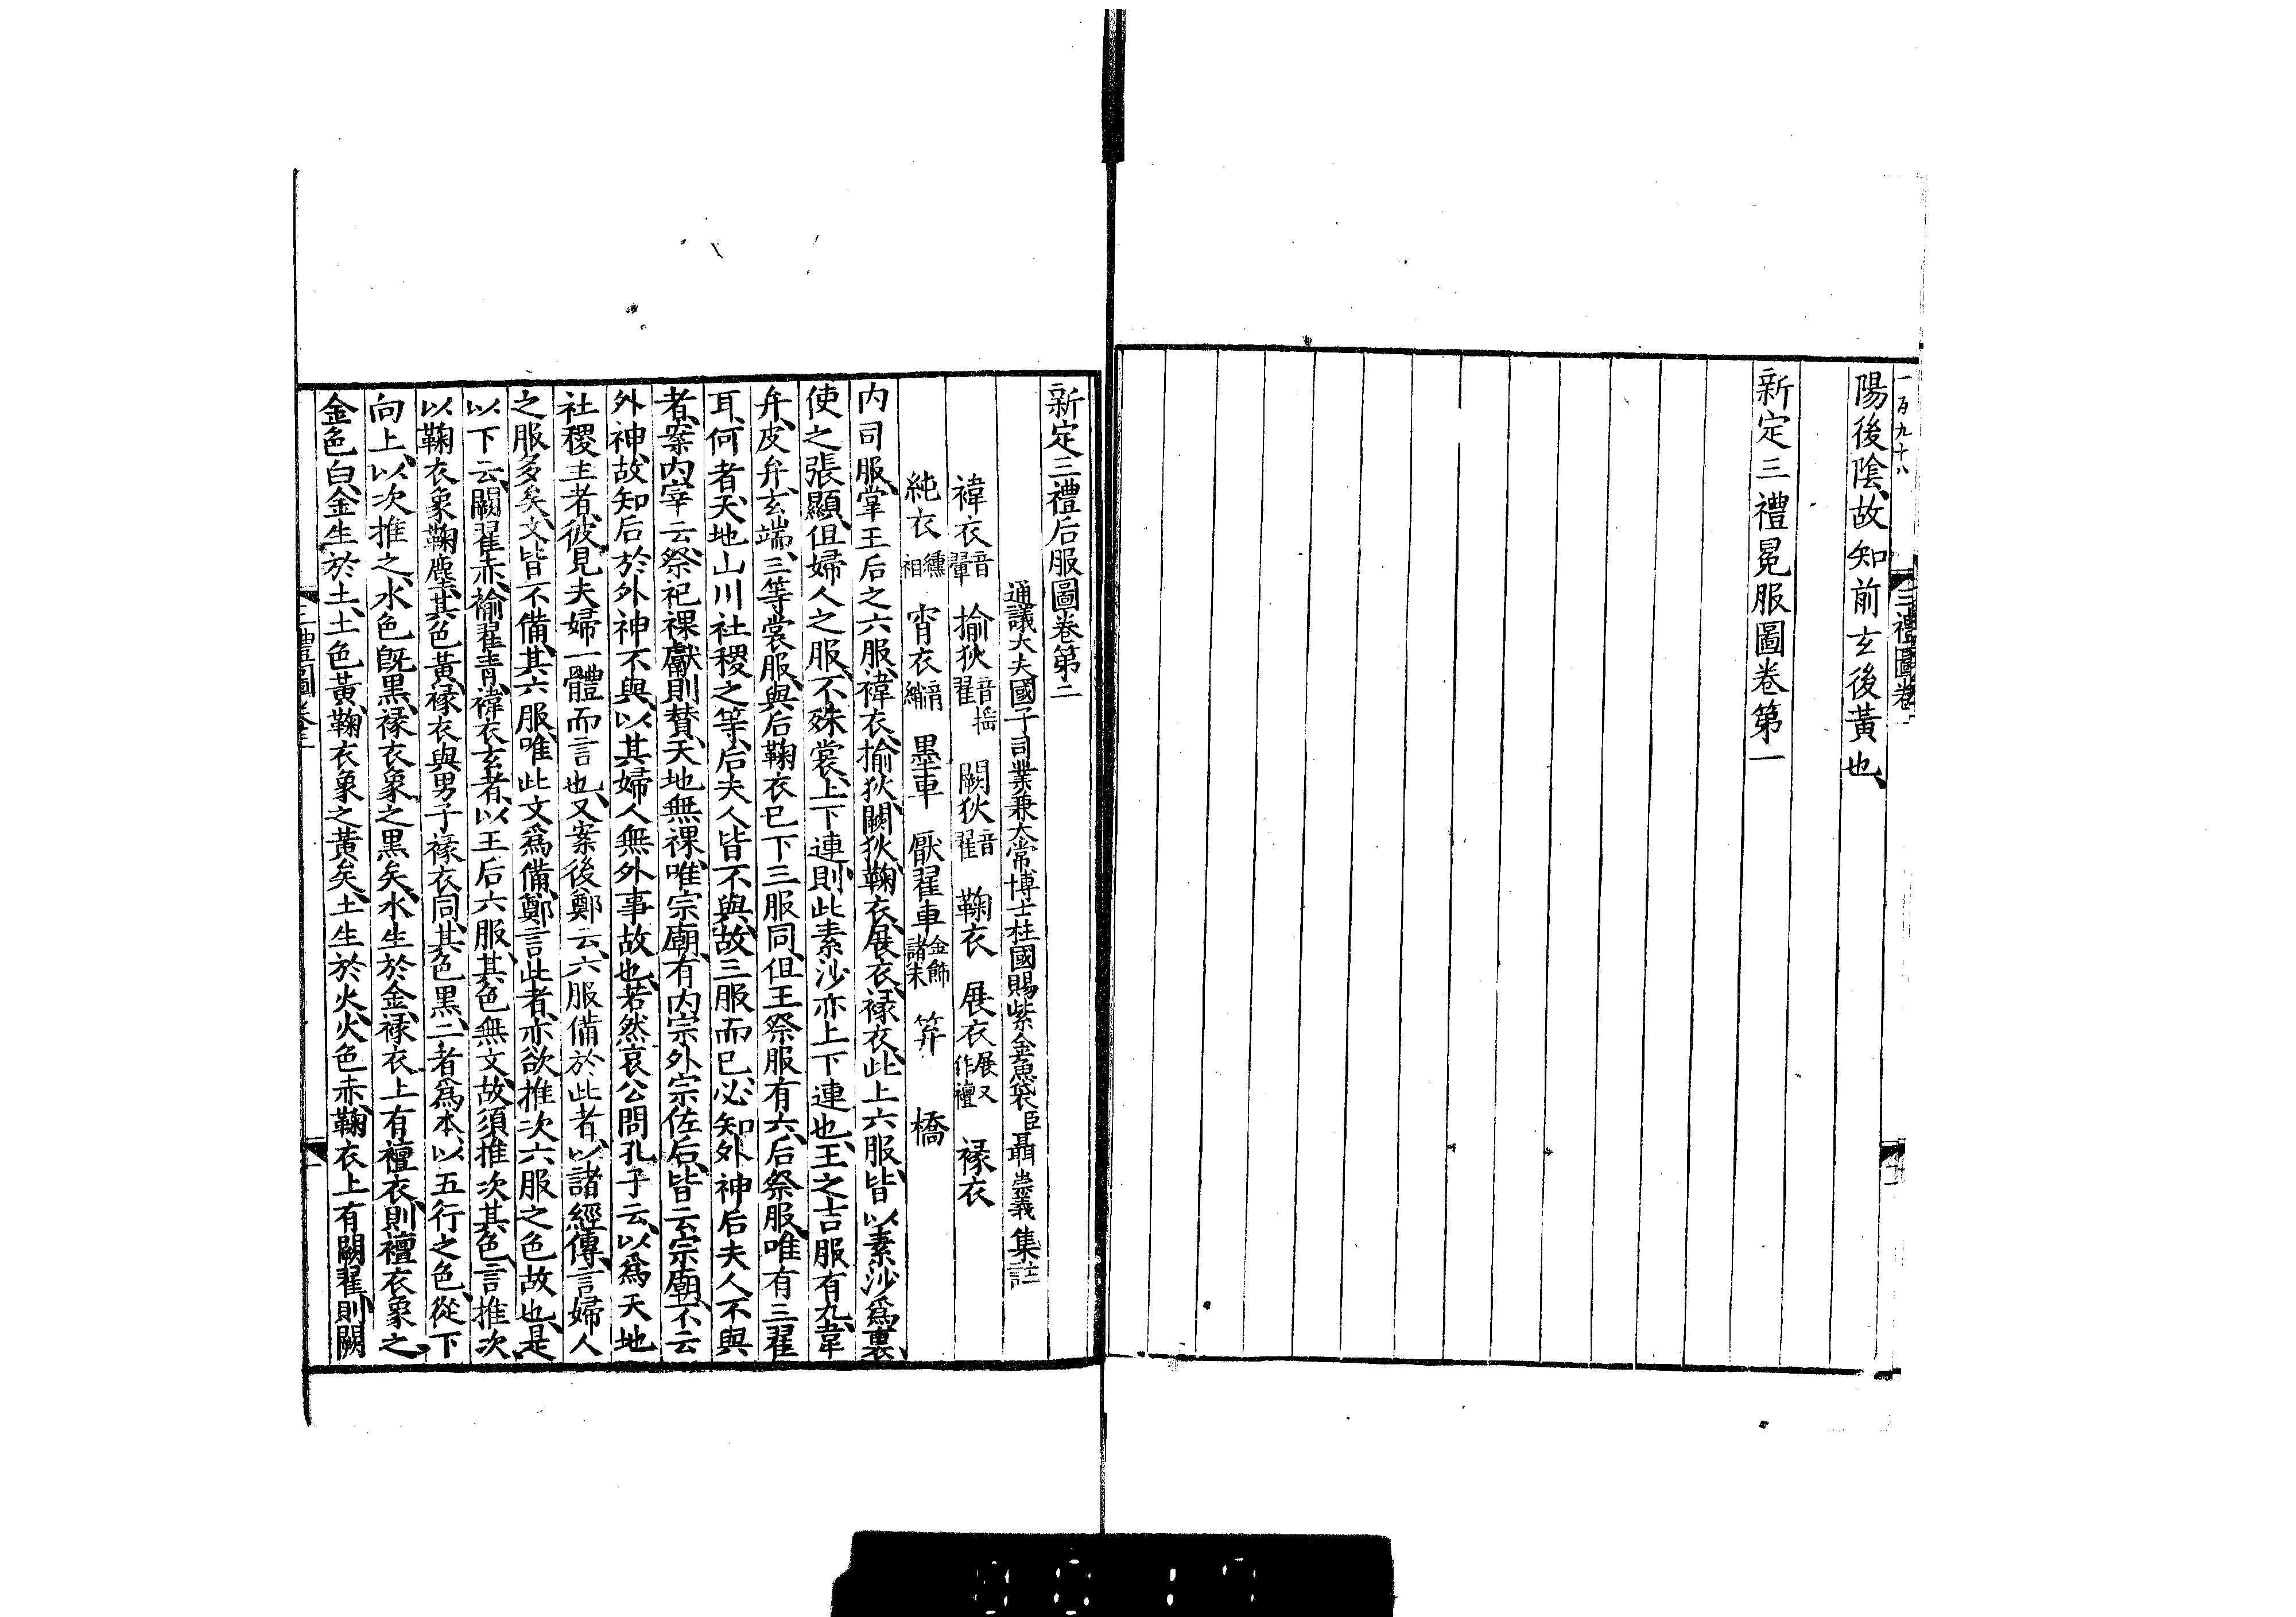 一百九十八
三禮圖卷一
十一
陽後陰、故知前玄後黃也、
新定三禮冕服圖卷第一
新定三禮后服圖卷第二
通議大夫國子司業兼太常博士柱國賜紫金魚袋臣聶崇義集註
褘衣音翬 揄狄音搖翟 闕狄音翟 鞠衣 展衣展又作襢 褖衣
純衣纁袡 宵衣音綃 墨車 厭翟車金飾諸末 笲 橋
内司服、掌王后之六服、褘衣、揄狄、闕狄、鞠衣、展衣、褖衣、此上六服、皆以素沙爲裏、
使之張顯、但婦人之服、不殊裳、上下連、則此素沙亦上下連也、王之吉服有九、韋
弁、皮弁、玄端、三等裳服、與后鞠衣已下三服同、但王祭服有六、后祭服、唯有三翟
耳、何者、天地山川社稷之等、后夫人皆不與、故三服而已、必知外神后夫人不與
者、案内宰云、祭祀祼獻則贊、天地無祼、唯宗廟、有内宗外宗佐后、皆云宗廟、不云
外神、故知后於外神不與、以其婦人無外事故也、若然哀公問孔子云、以爲天地
社稷主者、彼見夫婦一體而言也、又案後鄭云、六服備於此者、以諸經傳、言婦人
之服多矣、文皆不備、其六服、唯此文爲備、鄭言此者、亦欲推次六服之色故也、是
以下云、闕翟赤、揄翟青、褘衣玄者、以王后六服、其色無文、故須推次其色、言推次
以鞠衣象鞠塵、其色黃、褖衣與男子褖衣同、其色黑、二者爲本、以五行之色、從下
向上、以次推之、水色既黑、褖衣象之黑矣、水生於金、褖衣上有襢衣、則襢衣象之
金色白、金生於土、土色黃、鞠衣象之黃矣、土生於火、火色赤、鞠衣上有闕翟、則闕
三禮圖卷二
一